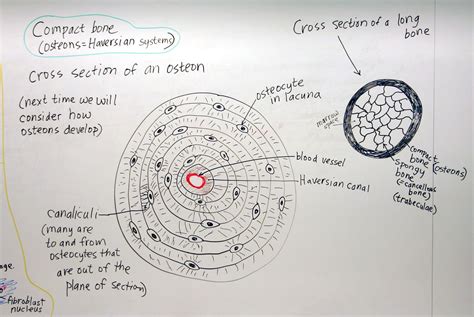 Compact bone
(osteons = Haversian systems)
Cross section of an osteon
(next time we will
consider how
osteons develop)
Cross section of a long
bone
osteocyte
in lacuna
marrow
space
compact
bone (osteons)
spongy
bone
(= cancellous
bone)
(trabeculae)
blood vessel
Haversian canal
canaliculi
(many are
to and from
osteocytes that
are out of the
plane of section)
fibroblast
nucleus